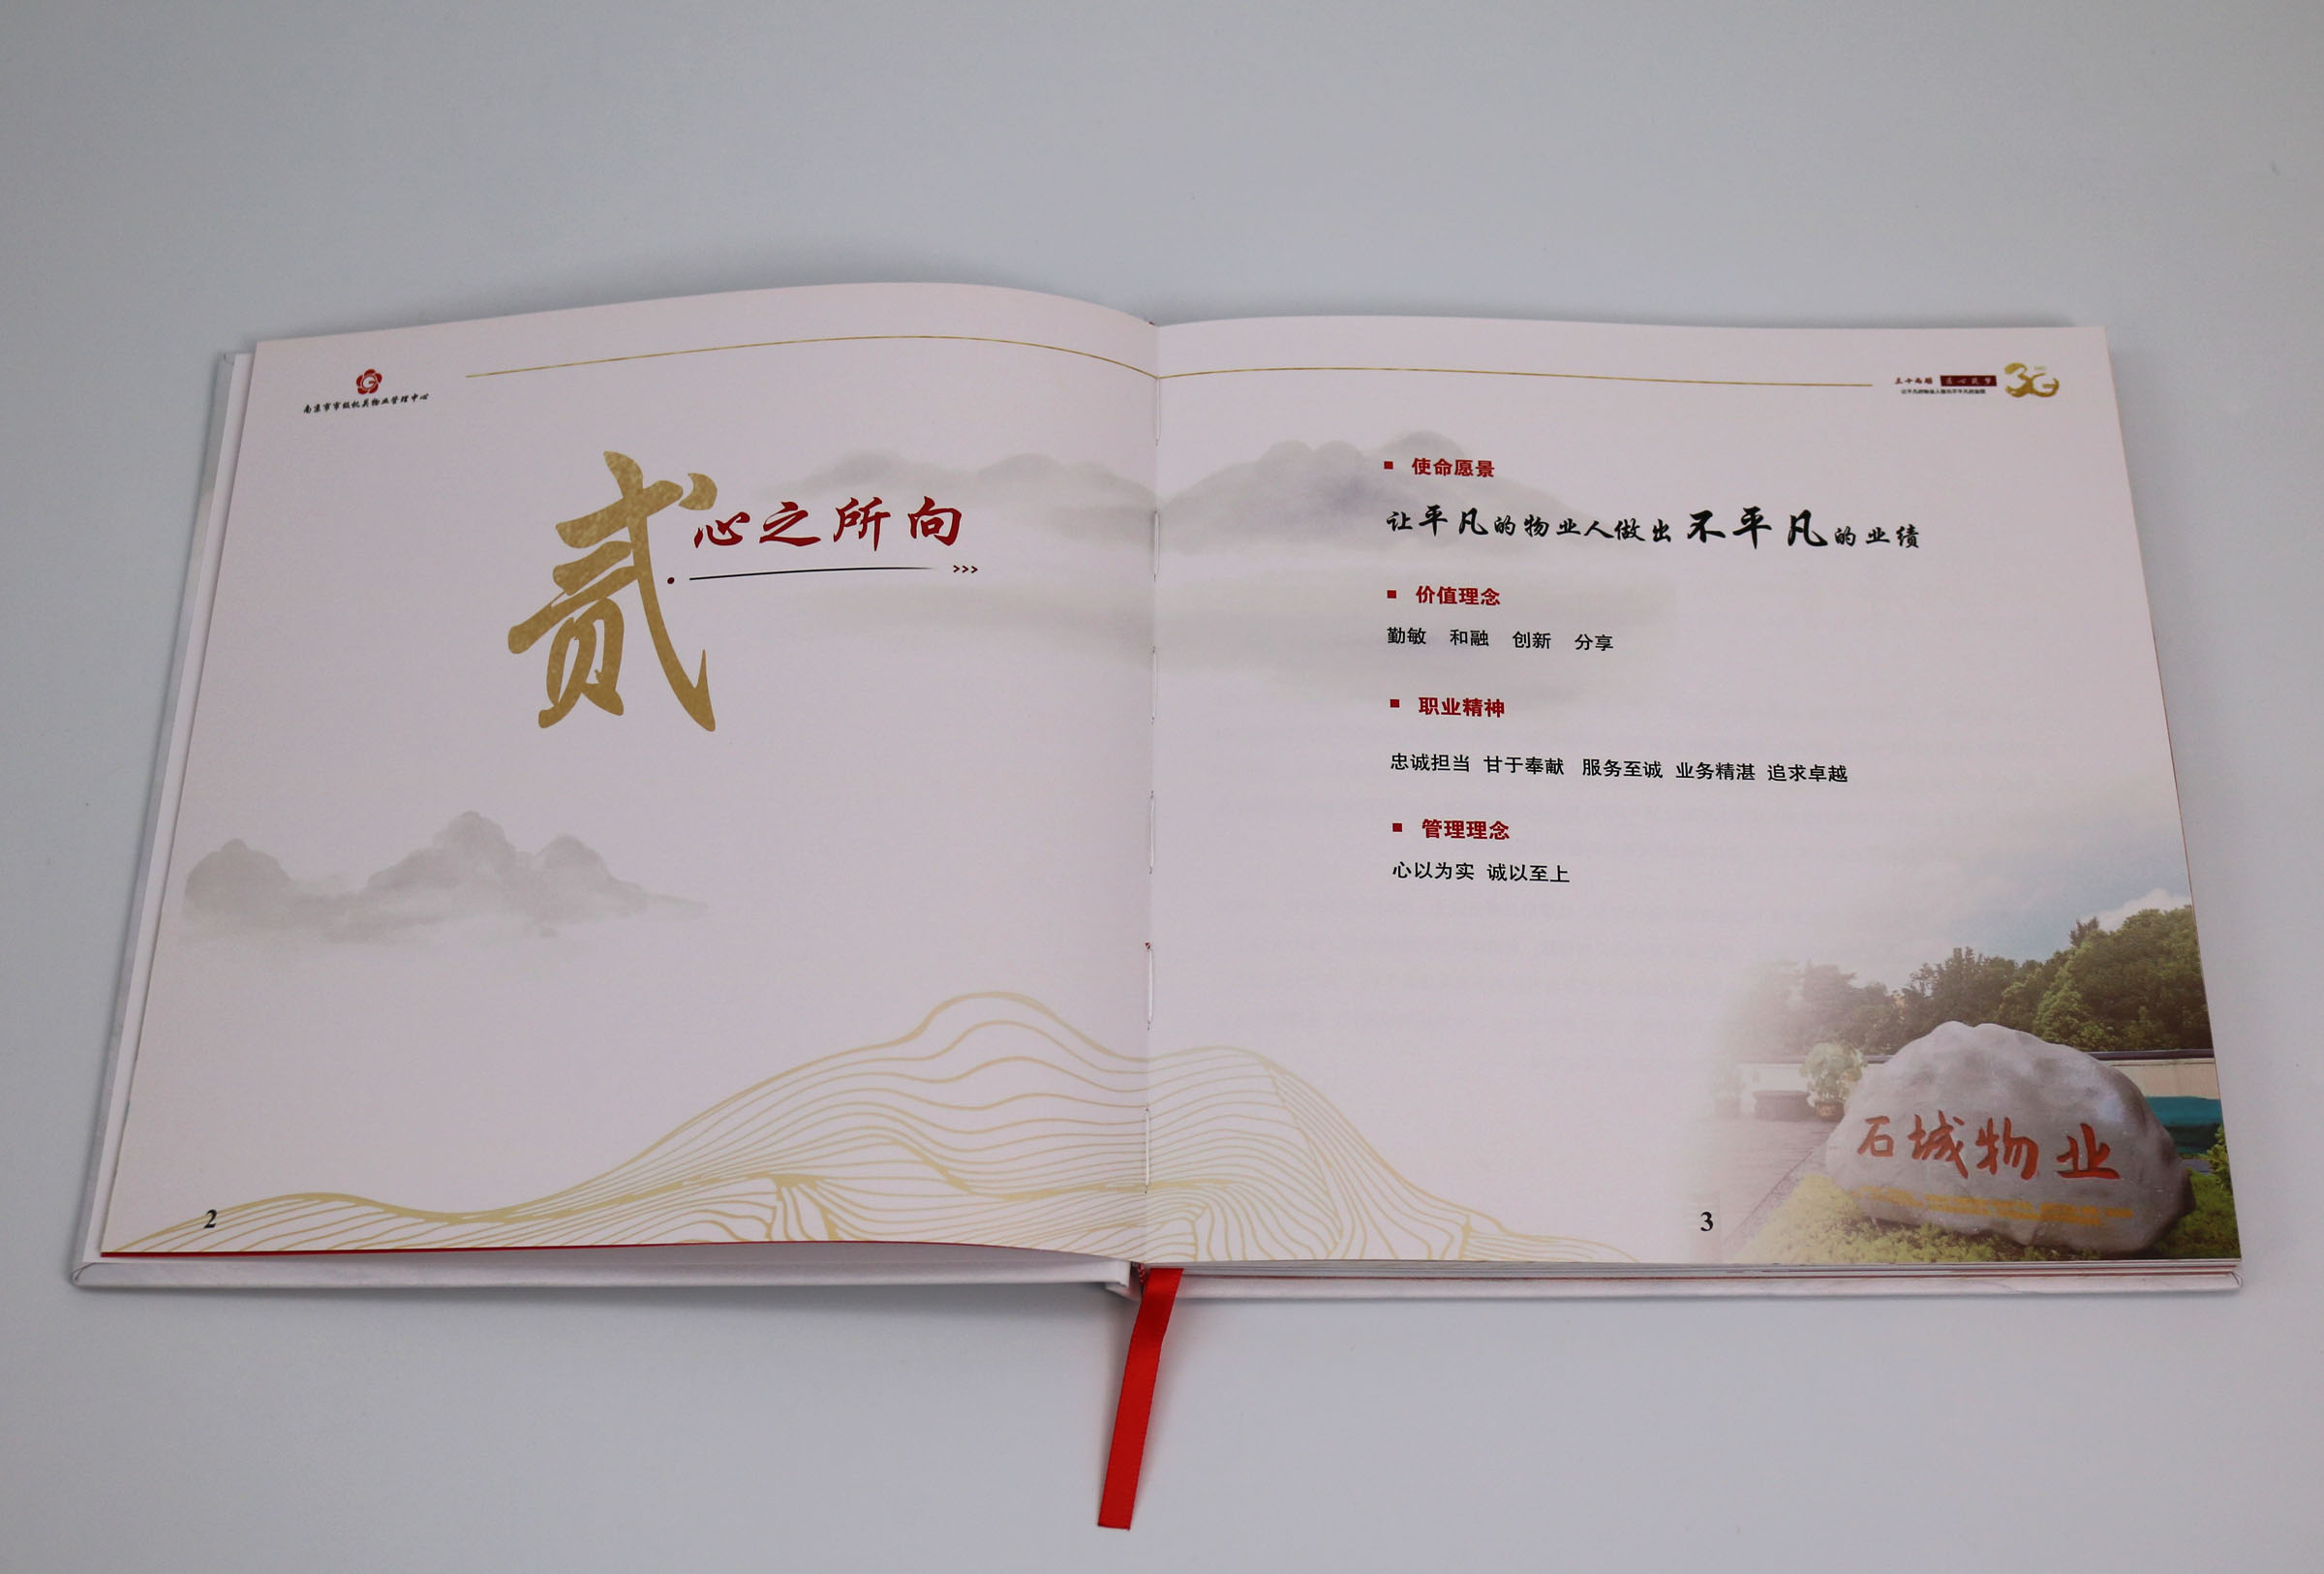 南京市市级机关物业管理中心
贰
心之所向
>>>
2
三十而励 匠心筑梦
让平凡的物业人做出不平凡的业绩
30
使命愿景
让平凡的物业人做出不平凡的业绩
价值理念
勤敏 和融 创新 分享
职业精神
忠诚担当 甘于奉献 服务至诚 业务精湛 追求卓越
管理理念
心以为实 诚以至上
石城物业
3